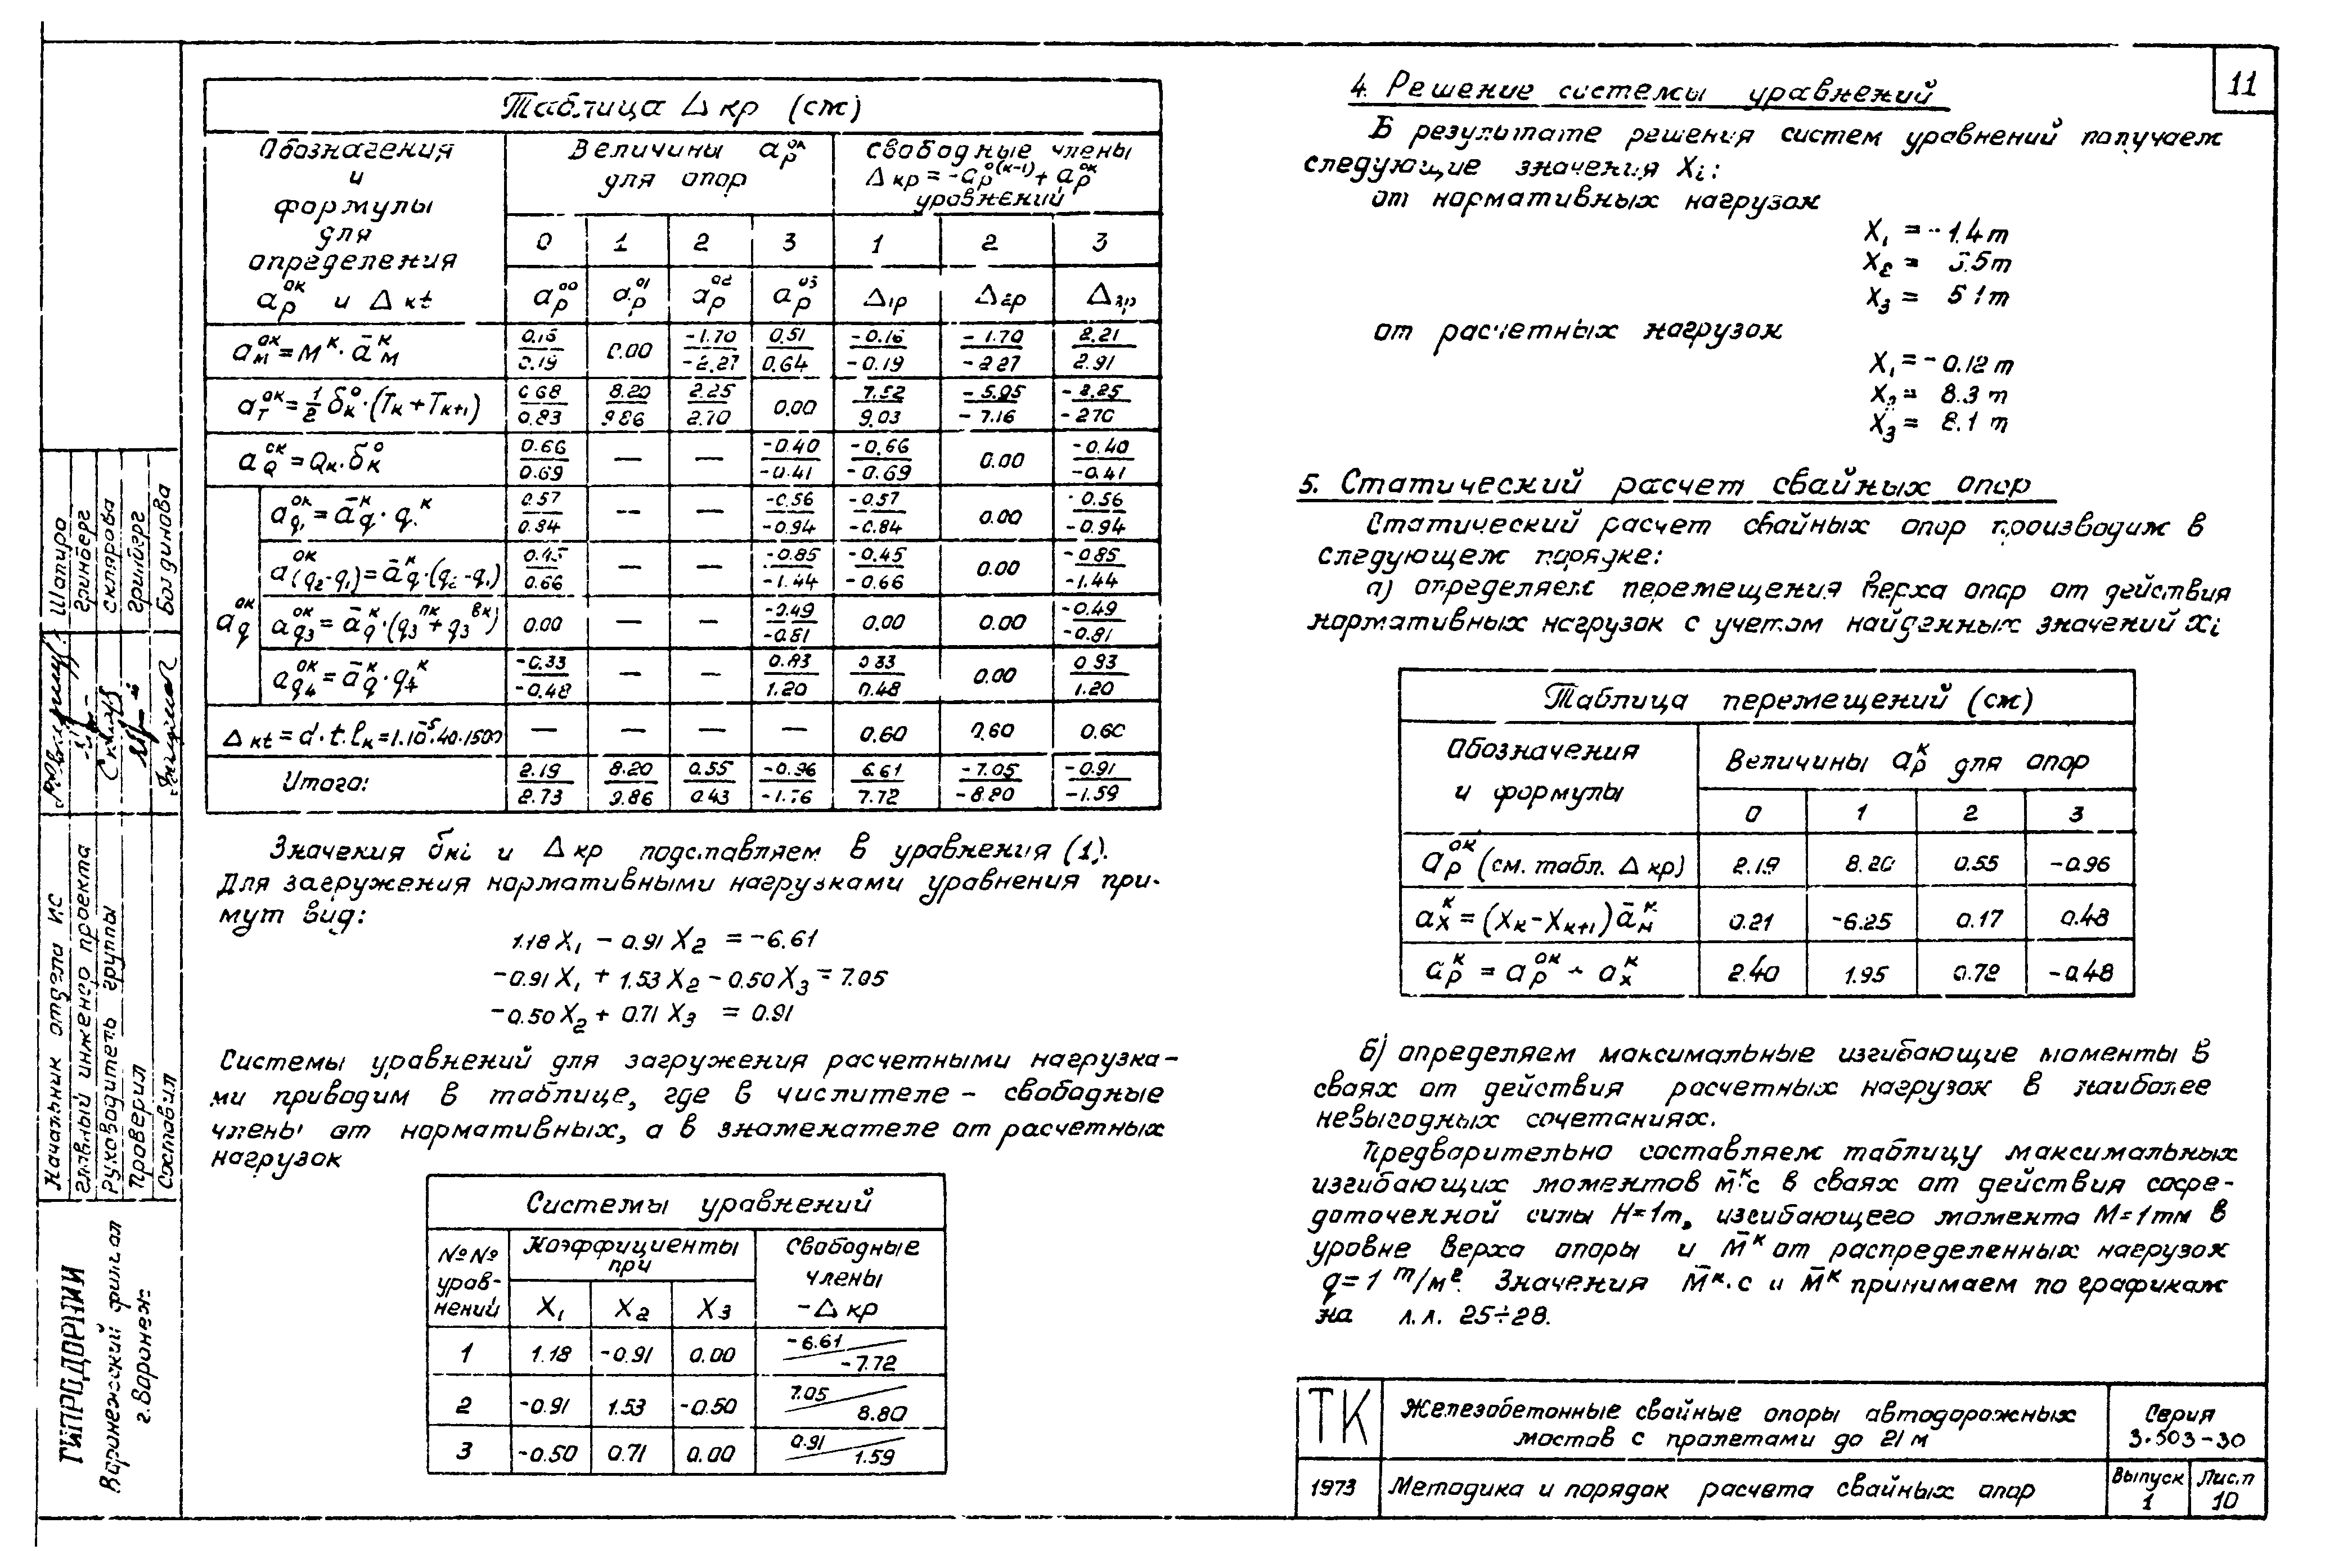 11
Таблица Δкр (см)
Обозначения и формулы для определения aр^ок и Δкt | Величины aр^ок для опор | Свободные члены Δкр = -aр^о(к-1) + aр^ок уравнений
0 | 1 | 2 | 3 | 1 | 2 | 3
aр^оо | aр^о1 | aр^о2 | aр^о3 | Δ1р | Δ2р | Δ3р
aм^ок = M^к · ā^к м | 0.15/0.19 | 0.00 | -1.70/-2.27 | 0.51/0.64 | -0.16/-0.19 | -1.70/-2.27 | 2.21/2.91
aт^ок = 1/2 δк^о · (Тк + Тк+1) | 0.68/0.83 | 8.20/9.86 | 2.25/2.70 | 0.00 | 7.52/9.03 | -5.95/-7.16 | -2.25/-2.70
aQ^ок = Qк · δк^о | 0.66/0.69 | — | — | -0.40/-0.41 | -0.66/-0.69 | 0.00 | -0.40/-0.41
aq^ок
aq1^ок = āq^к · q1^к | 0.57/0.84 | — | — | -0.56/-0.94 | -0.57/-0.84 | 0.00 | -0.56/-0.94
a(q2-q1)^ок = āq^к · (q2 - q1) | 0.45/0.66 | — | — | -0.85/-1.44 | -0.45/-0.66 | 0.00 | -0.85/-1.44
aq3^ок = āq^к · (q3^пк + q3^вк) | 0.00 | — | — | -0.49/-0.81 | 0.00 | 0.00 | -0.49/-0.81
aq4^ок = āq^к · q4^к | -0.33/-0.48 | — | — | 0.83/1.20 | 0.33/0.48 | 0.00 | 0.83/1.20
Δкt = d · t · lк = 1·10^-5·40·1500 | — | — | — | — | 0.60 | 0.60 | 0.60
Итого: | 2.19/2.73 | 8.20/9.86 | 0.55/0.43 | -0.96/-1.76 | 6.61/7.72 | -7.05/-8.80 | -0.91/-1.59
Значения δкi и Δкр подставляем в уравнения (1).
Для загружения нормативными нагрузками уравнения при-
мут вид:
1.18X1 - 0.91X2 = -6.61
-0.91X1 + 1.53X2 - 0.50X3 = 7.05
-0.50X2 + 0.71X3 = 0.91
Системы уравнений для загружения расчетными нагрузка-
ми приводим в таблице, где в числителе - свободные
члены от нормативных, а в знаменателе от расчетных
нагрузок
Системы уравнений
№№ урав-нений | Коэффициенты при | Свободные члены -Δкр
X1 | X2 | X3
1 | 1.18 | -0.91 | 0.00 | -6.61/-7.72
2 | -0.91 | 1.53 | -0.50 | 7.05/8.80
3 | -0.50 | 0.71 | 0.00 | 0.91/1.59
4. Решение системы уравнений
В результате решения систем уравнений получаем
следующие значения Xi:
от нормативных нагрузок
X1 = -1.4т
X2 = 5.5т
X3 = 5.1т
от расчетных нагрузок
X1 = -0.12т
X2 = 8.3т
X3 = 8.1т
5. Статический расчет свайных опор
Статический расчет свайных опор производим в
следующем порядке:
а) определяем перемещения верха опор от действия
нормативных нагрузок с учетом найденных значений Xi
Таблица перемещений (см)
Обозначения и формулы | Величины aр^к для опор
0 | 1 | 2 | 3
aр^ок (см. табл. Δкр) | 2.19 | 8.20 | 0.55 | -0.96
aх^к = (Xк - Xк+1) āм^к | 0.21 | -6.25 | 0.17 | 0.48
aр^к = aр^ок + aх^к | 2.40 | 1.95 | 0.72 | -0.48
б) определяем максимальные изгибающие моменты в
сваях от действия расчетных нагрузок в наиболее
невыгодных сочетаниях.
Предварительно составляем таблицу максимальных
изгибающих моментов M̄^к·с в сваях от действия сосре-
доточенной силы H=1т, изгибающего момента M=1тм в
уровне верха опоры и M̄^к от распределенных нагрузок
q=1 т/м². Значения M̄^к·с и M̄^к принимаем по графикам
на л.л. 25÷28.
ТК | Железобетонные свайные опоры автодорожных мостов с пролетами до 21м | Серия 3.503-30
1973 | Методика и порядок расчета свайных опор | Выпуск 1 | Лист 10
Начальник отдела ИС | Шапиро
Главный инженер проекта | Гринберг
Руководитель группы | Склярова
Проверил | Гринберг
Составил | Богдинова
ГИПРОДОРНИИ
Воронежский филиал
г. Воронеж